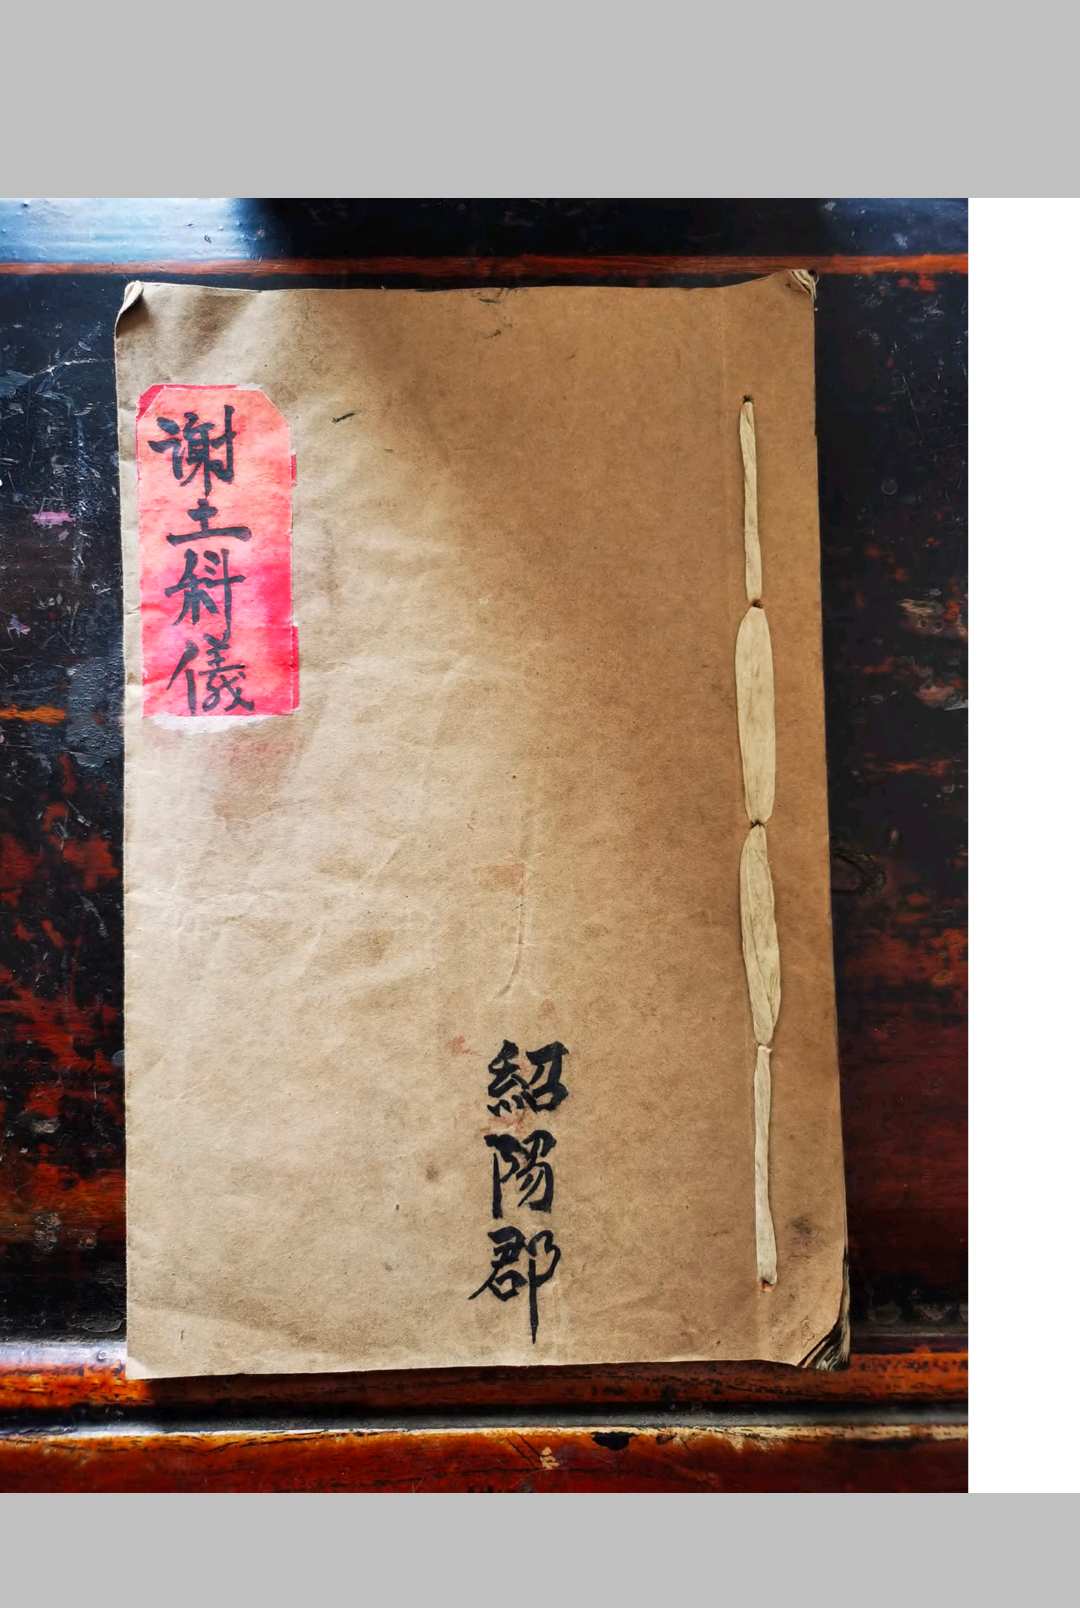 谢土科儀
紹陽郡